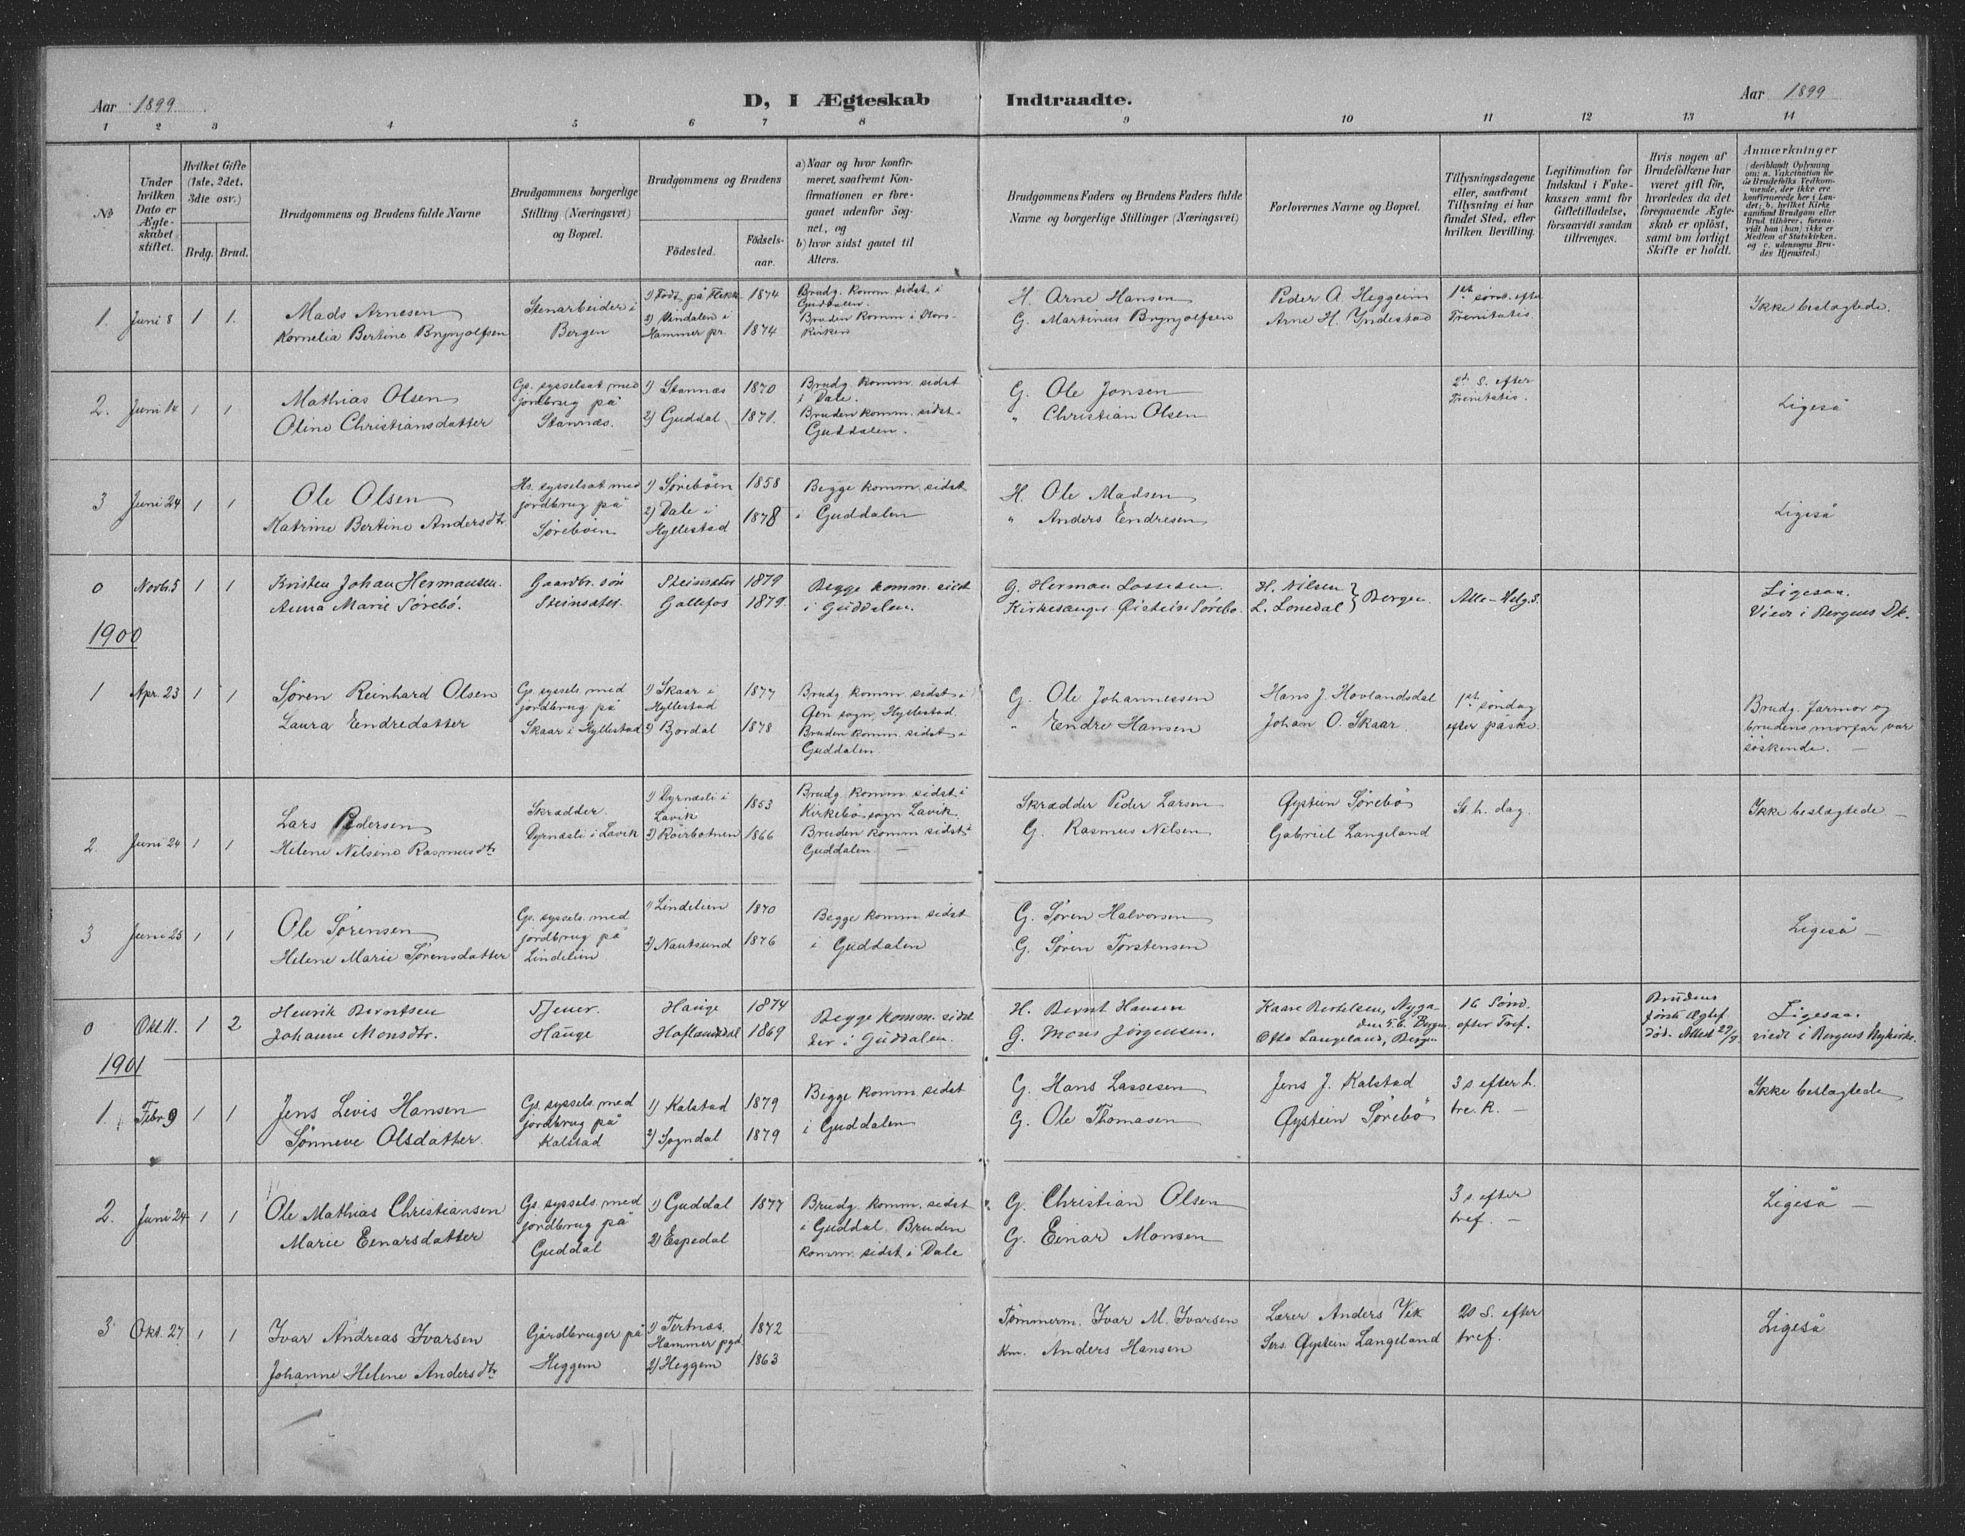 Aar 1899
D, I Ægteskab Indtraadte.
Aar 1899
1 2 3 4 5 6 7 8 9 10 11 12 13 14
№
Under hvilken Dato er Ægteskabet stiftet.
Hvilket Gifte (1ste, 2det, 3die osv.)
Brdg. Brud.
Brudgommens og Brudens fulde Navne
Brudgommens borgerlige Stilling (Næringsvei) og Bopæl.
Brudgommens og Brudens
Fødested.
Fødselsaar.
a) Naar og hvor konfirmeret, saafremt Konfirmationen er foregaaet udenfor Sognet, og
b) hvor sidst gaaet til Alters.
Brudgommens Faders og Brudens Faders fulde Navne og borgerlige Stillinger (Næringsvei)
Forlovernes Navne og Bopæl.
Tillysningsdagene eller, saafremt Tillysning ei har fundet Sted, efter hvilken Bevilling.
Legitimation for Indskud i Enkekassen samt for Giftetilladelse, forsaavidt saadan tiltrænges.
Hvis nogen af Brudefolkene har været gift før, hvorledes da det foregaaende Ægteskab er opløst, samt om lovligt Skifte er holdt.
Anmærkninger
(deriblandt Oplysning om: a. Vakcination for de Brudefolks Vedkommende, der ikke ere konfirmerede her i Landet; b. hvilket Kirkesamfund Brudgom eller Brud tilhører, forsaavidt han (hun) ikke er Medlem af Statskirken. og c. udensogns Brudes Hjemsted.)
1. Juni 8 1 1.
Mads Arnesen
Kornelia Bertine Brynjolfsen
Stenarbeider i
Bergen
1) Født på Flekke 1874
2) Vindalen i
Hammer pr. 1874
Brudg. komm. sidst i
Guddalen.
Bruden komm. i Korskirken
H. Arne Hansen
G. Martinus Brynjolfsen
Peder A. Heggeim
Arne H. Yndestad
1ste sønd. efter
Trenitatis.
Ikke beslægtede.
2. Juni 14 1 1
Mathias Olsen
Oline Christiansdatter
Gs. sysselsat med
jordbrug på
Stannæs.
1) Stannæs 1870
2) Guddal 1871.
Brudg. komm. sidst
i Dale.
Bruden komm. sidst i
Guddalen.
G. Ole Jonsen
" Christian Olsen
2d. S. efter
Trenitatis.
Ligeså
3 Juni 24 1 1
Ole Olsen
Katrine Bertine Andersdtr
Hs. sysselsat med
jordbrug på
Søreböen
1) Søreböen 1858
2) Dale i
Hyllestad 1878
Begge komm. sidst
i Guddalen
H. Ole Madsen
" Anders Endresen
Ligeså
0 Novb. 5 1 1
Kristen Johan Hermansen.
Anna Marie Sørebø.
Gaardbr. søn
Steinsæter.
Steinsæter 1879
Gallefos 1879.
Begge komm. sidst
i Guddalen.
G. Herman Lassesen.
Kirkesanger Øistein Sørebø.
H. Nilsen
L. Lonedal } Bergen.
Alle-Helg. S.
Ligesaa.
Viede i Bergens Dk.
1900
1 Apr. 23 1 1
Søren Reinhard Olsen
Laura Endredatter
Gs. syssels. med
jordbrug på
Skaar i Hyllestad
1) Skaar i 1877
Hyllestad
2) Bjordal 1878
Brudg. komm. sidst i
Øen sogn, Hyllestad.
Bruden komm. sidst i
Guddalen
G. Ole Johannesen
" Endre Hansen
Hans J. Hovlandsdal
Johan O. Skaar.
1ste søndag
efter påske
Brudg. farmor og
brudens morfar var
søskende.
2. Juni 24 1 1
Lars Pedersen
Helene Nilsine Rasmusdtr
Skrædder
Dyrnæsli i Lavik
1) Dyrnæsli i 1853
Lavik
2) Röirbotnen 1866
Brudg. komm. sidst i
Kirkebø sogn Lavik.
Bruden komm. sidst i
Guddalen
Skrædder Peder Larsen
G. Rasmus Nilsen
Øystein Sørebö
Gabriel Langeland
St. h. dag.
Ikke beslægtede
3 Juni 25 1 1
Ole Sørensen
Helene Marie Sørensdatter
Gs. syssels. med
jordbrug på
Lindelien
1) Lindelien 1870
2) Nautsund 1876
Begge komm. sidst
i Guddalen
G. Søren Halvorsen
G. Søren Torstensen
Ligeså
0 Okt. 11. 1 2
Henrik Berntsen
Johanne Monsdtr.
Tjener.
Hauge
Hauge 1874
Haflandsdal 1869
Begge komm. sidst
her i Guddalen.
H. Bernt Hansen
G. Mons Jørgensen.
Kaare Bertelsen, Nyga
den 56. Bergen.
Otto Langeland, Bergen
16 Sønd.
efter Tref.
Brudens
første Ægtef.
død. Attest 29/9
Ligesaa.
viede i Bergens Nykirke.
1901
1. Febr. 9 1 1
Jens Levis Hansen
Sønneve Olsdatter
Gs. syssels. med
jordbrug på
Kalstad
1) Kalstad 1879
2) Sogndal 1879
Begge komm. sidst
i Guddalen
G. Hans Lassesen
G. Ole Thomasen
Jens J. Kalstad
Øystein Sørebö
3 s. efter h.
tre. K.
Ikke beslægtede
2. Juni 24 1 1
Ole Mathias Christiansen
Marie Einarsdatter
Gs. syssels. med
jordbrug på
Guddal
1) Guddal 1877
2) Espedal
Brudg. komm. sidst
i Guddal. Bruden
komm. sidst i Dale
G. Christian Olsen
G. Einar Monsen
3 s. efter
tref.
Ligeså
3 Okt. 27 1 1
Ivar Andreas Ivarsen
Johanne Helene Andersdtr
Gårdbruger på
Heggem
1) Tertnæs, 1872
Hammer pgd
2) Heggem 1863
Tømmerm. Ivar M. Ivarsen
Km. Anders Hansen
Lærer Anders Vik
Sers. Øystein Langeland
20 S. efter
tref.
Ligeså